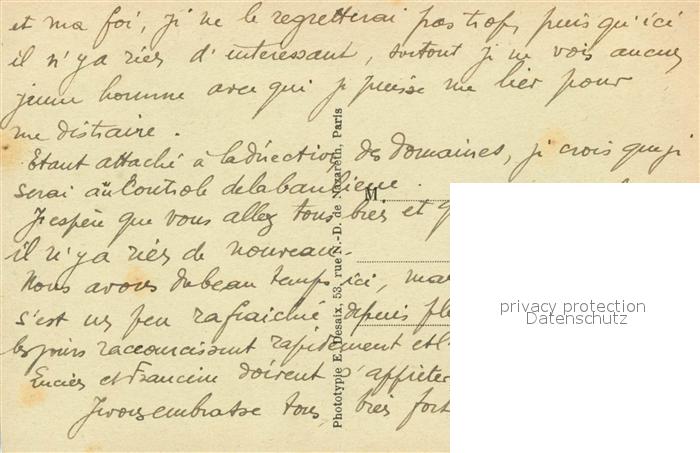 et ma foi, je ne le regretterai pas trop, puisqu'ici
il n'y a rien d'interessant, surtout je ne vois aucun
jeune homme avec qui je puisse me lier pour
me distraire.
Etant attaché à la direction des Domaines, je crois que je
serai au Controle de la banlieue.
J'espère que vous allez tous bien et q
il n'y a rien de nouveau.
Nous avons du beau temps ici, mai
s'est un peu rafraichi depuis
les jours raccourcissent rapidement et l'
et Francine doivent s'apprêter
Je vous embrasse tous bien fort
M
Phototypie E. Desaix, 53, rue N.-D. de Nazareth, Paris
privacy protection
Datenschutz